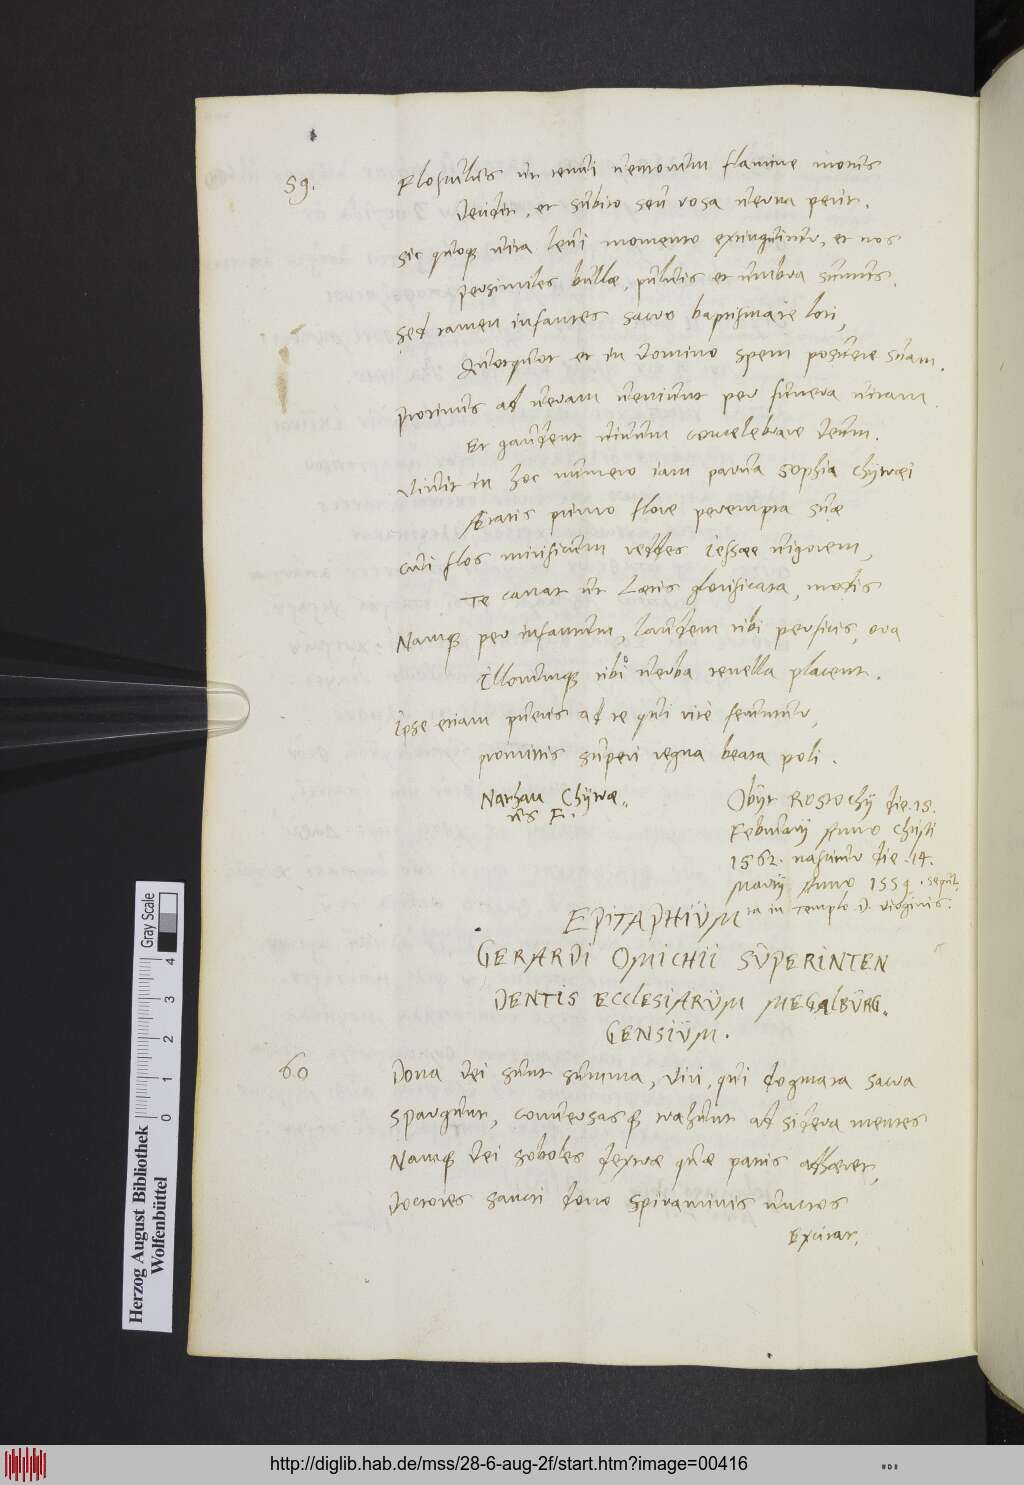 59.
Flosculus ut tenui nemorum flamine motus
decidit, et subito seu rosa verna perit.
Sic quoq vita levi momento extinguitur, et nos
persimiles bullæ, pulvis et umbra sumus.
Sed tamen infantes sacro baptismate loti,
Quotquot et in domino spem posuere suam.
Protinus ad veram veniunt per funera vitam.
Et gaudent vivum concelebrare deum.
Vivit in hoc numero iam parva Sophia Chytræi
Ætatis primo flore perempta suæ
Cui flos mirificum reddes Iessææ vigorem,
Te canat ut lætis glorificata, modis
Namq per infantum, laudem tibi perficis, ora
Illorumq tibi verba tenella placent.
Ipse etiam pueris ad te qui rite feruntur,
promittis superi regna beata poli.
Nathan Chytræ„
us F.
Obijt Rostochij die. 18.
Februarij Anno Christi
1562. nascitur die. 14.
Marcij Anno 1559. sepul„
ta in templo D. virginis.
EPITAPHIUM
GERARDI OMICHII SUPERINTEN
DENTIS ECCLESIARUM MEGALBURG„
GENSIUM.
60
Dona dei sunt summa, viri, qui dogmata sacra
Spargunt, conversasq trahunt ad sidera mentes
Namq dei soboles dextræ quæ patris adhæret,
Doctores sancti dono spiraminis unctos
Excitat,
Herzog August Bibliothek
Wolfenbüttel
Gray Scale
0 1 2 3 4
http://diglib.hab.de/mss/28-6-aug-2f/start.htm?image=00416